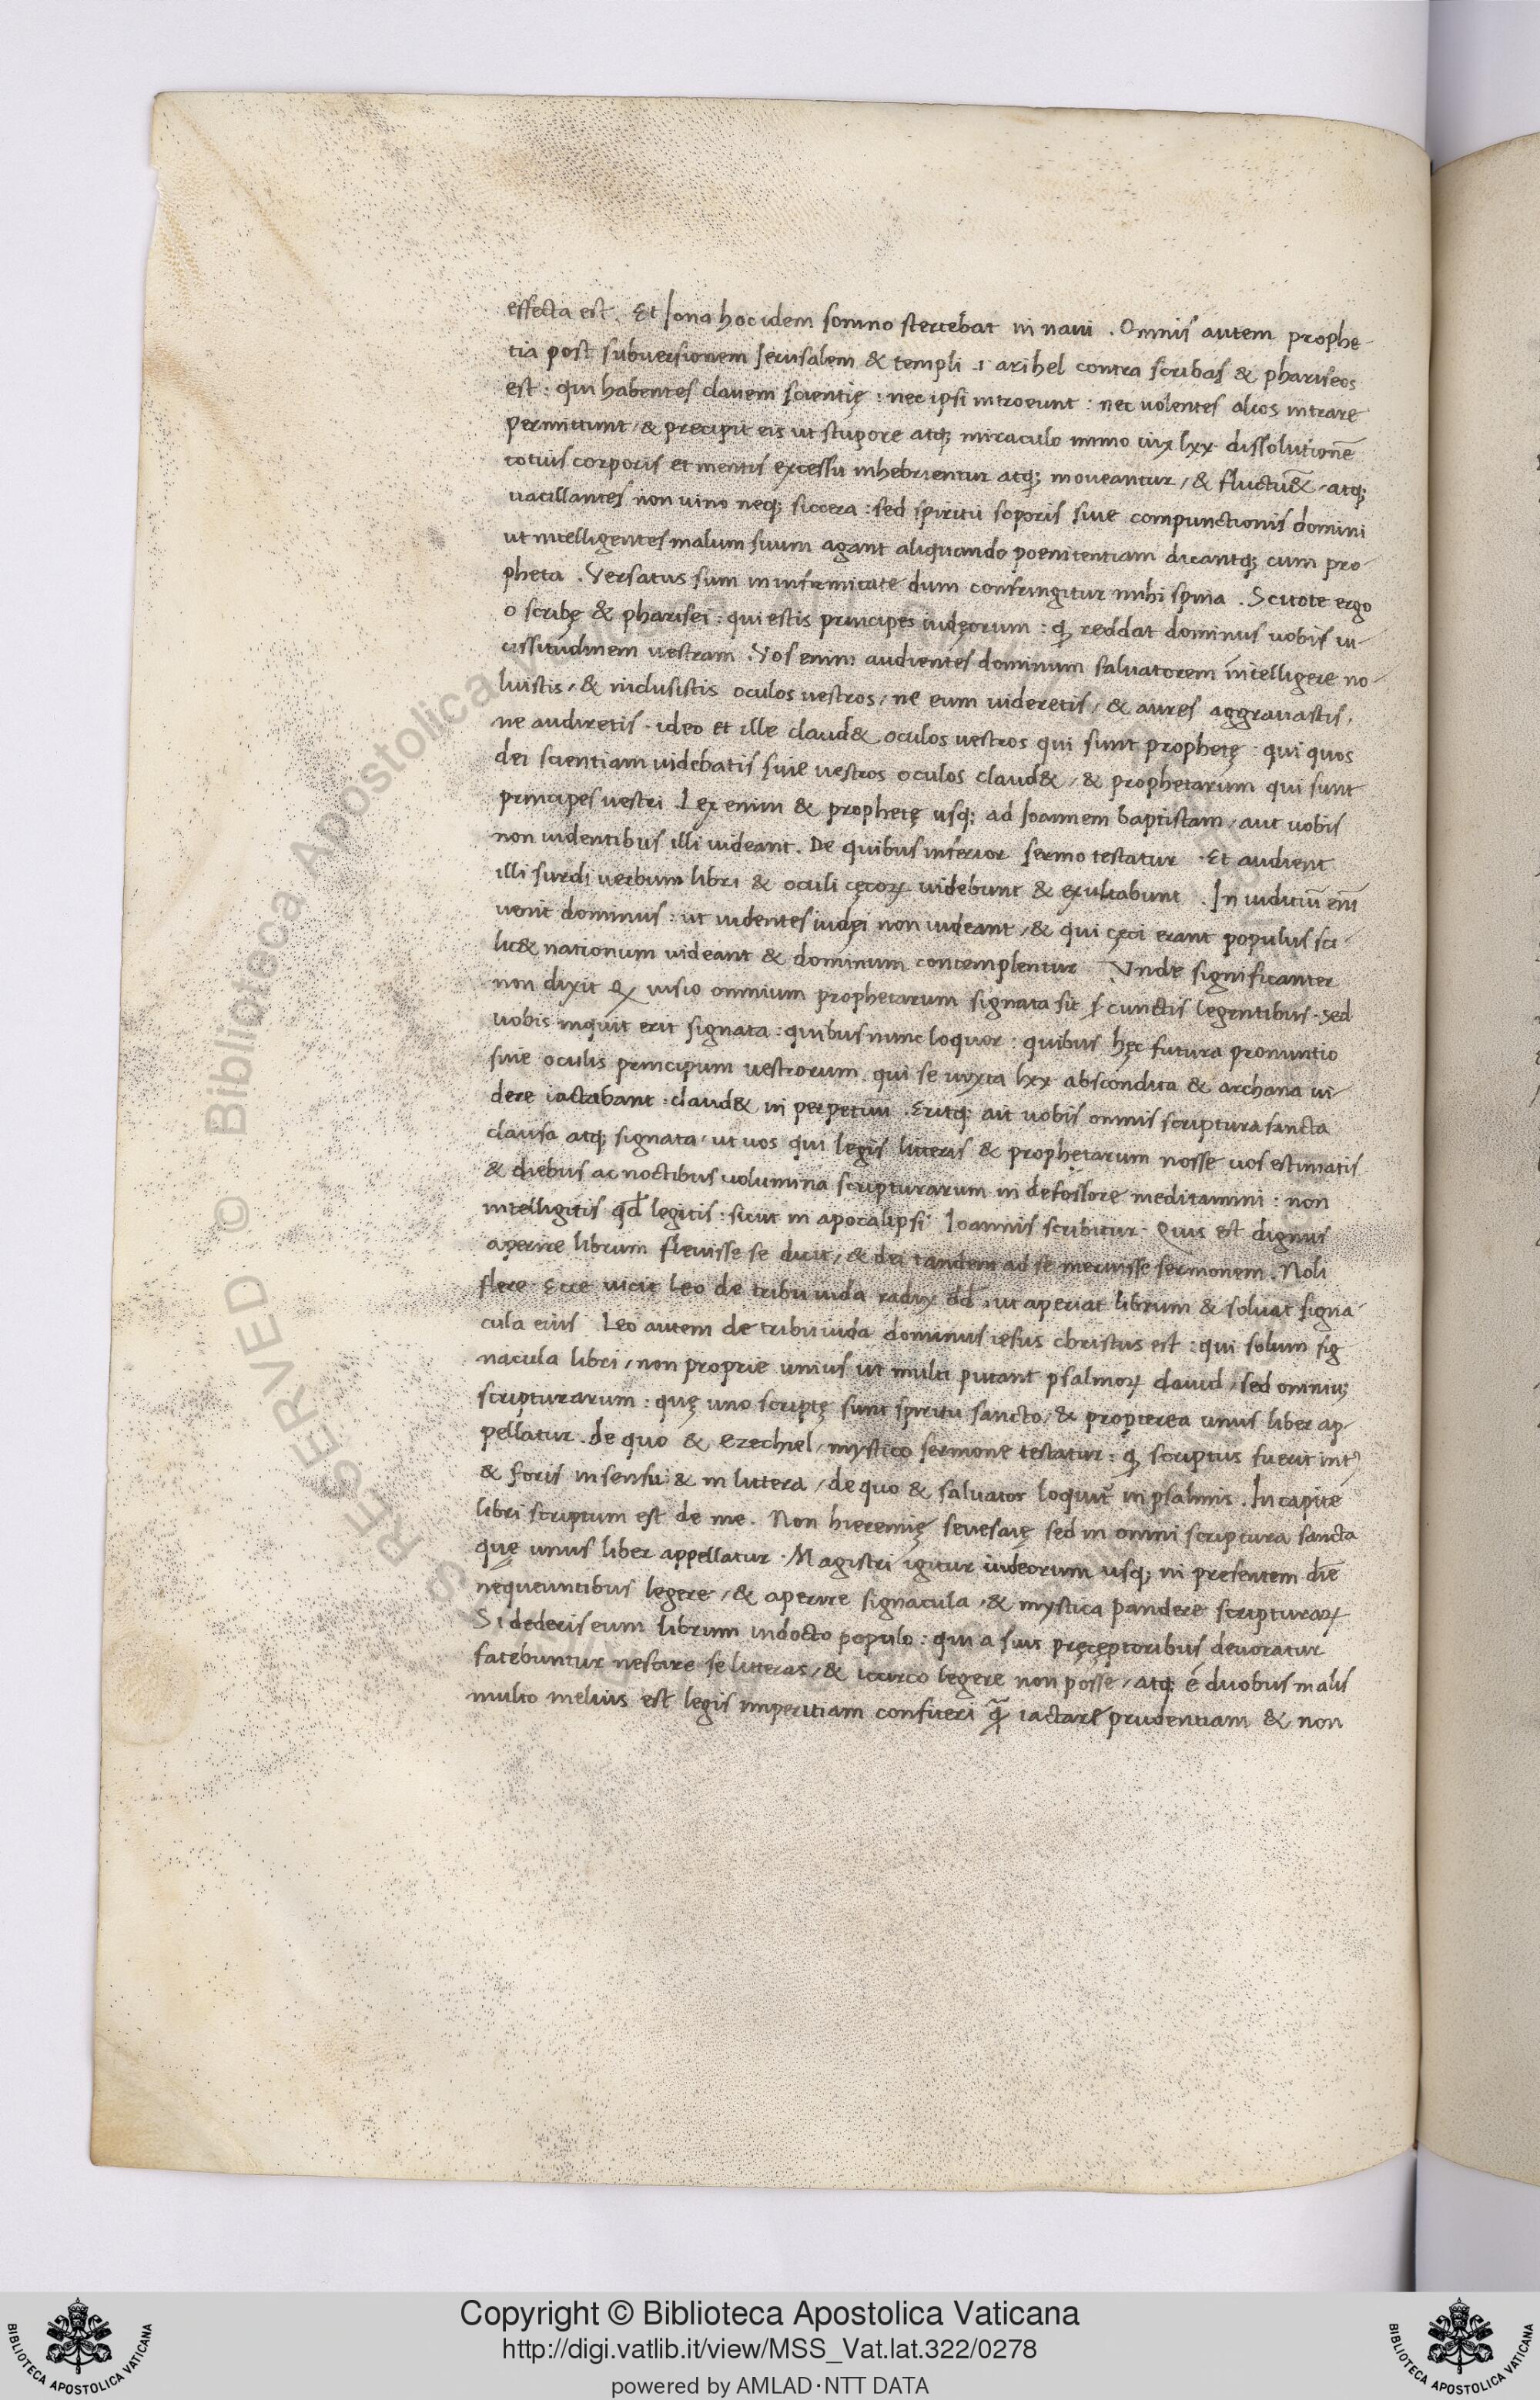 effecta est. Et Iona hoc idem somno stertebat in naui. Omnis autem prophe-
tia post subuersionem Ierusalem & templi .i. arihel contra scribas & phariseos
est: qui habentes clauem scientię: nec ipsi introeunt: nec uolentes alios intrare
permittunt/ & precipit eis ut stupore atq; miraculo immo iux lxx dissolutionē
totius corporis et mentis excessu inhebrientur atq; moueantur/ & fluctuēt/ atq;
uacillantes non uino neq; siccera: sed spiritu soporis siue compunctionis domini
ut intelligentes malum suum agant aliquando poenitentiam dicantq; cum pro-
pheta. Versatus sum in infirmitate dum confringitur mihi spina. Scitote ergo
o scribę & pharisei: qui estis principes iudęorum: ꝙ reddat dominus uobis ui-
cissitudinem uestram. Vos enim audientes dominum saluatorem intelligere no-
luistis/ & inclusistis oculos uestros/ ne eum uideretis/ & aures aggrauastis/
ne audiretis. ideo et ille claud& oculos uestros qui sunt prophetę: qui quos
dei scientiam uidebatis siue uestros oculos claud&/ & prophetarum qui sunt
principes uestri. Lex enim & prophetę usq; ad Ioannem baptistam/ aut uobis
non uidentibus illi uideant. De quibus inferior sermo testatur. Et audient
illi surdi uerbum libri & oculi cęcoꝝ uidebunt & exultabunt. In iudiciū enī
uenit dominus: ut uidentes iudęi non uideant/ & qui cęci erant populus sci-
lic& nationum uideant & dominum contemplentur. Vnde significanter
non dixit ꝙ uisio omnium prophetarum signata sit cunctis legentibus. sed
uobis inquit erit signata: quibus nunc loquor: quibus hęc futura pronuntio
siue oculis principum uestrorum qui se iuxta lxx abscondita & archana ui-
dere iactabant: claud& in perpetuū. Eritq; ait uobis omnis scriptura sancta
clausa atq; signata/ ut uos qui legis litteris & prophetarum nosse uos estimatis
& diebus ac noctibus uolumina scripturarum in defossore meditamini: non
intelligitis qd̄ legitis: sicut in apocalipsi Ioannis scribitur. Quis est dignus
aperire librum fleuisse se dicit/ & dei tandem ad se meruisse sermonem. Noli
flere. Ecce uicit leo de tribu iuda radix dd̄. ut aperiat librum & soluat signa-
cula eius. Leo autem de tribu iuda dominus iesus christus est: qui solum sig
nacula libri/ non proprie unius ut multi putant psalmoꝝ dauid/ sed omniu;
scripturarum: quę uno scriptę sunt spiritu sancto/ & propterea unus liber ap-
pellatur. de quo & ezechiel/ mystico sermone testatur: ꝙ scriptus fuerit intꝰ
& foris in sensu & in littera/ de quo & saluator loquit̄ in psalmis. In capite
libri scriptum est de me. Non hieremię seu esaię sed in omni scriptura sancta
quę unus liber appellatur. Magistri igitur iudeorum usq; in presentem diē
nequeuntibus legere/ & aperire signacula/ & mystica pandere scripturaꝝ
Si dederis eum librum indocto populo: qui a suis pręceptoribus deuoratur
fatebuntur nescire se litteras/ & iccirco legere non posse/ atq; é duobus malis
multo melius est legis imperitiam confiteri ꝙ̄ iactare prudentiam & non
Copyright © Biblioteca Apostolica Vaticana
http://digi.vatlib.it/view/MSS_Vat.lat.322/0278
powered by AMLAD·NTT DATA
BIBLIOTECA APOSTOLICA VATICANA
BIBLIOTECA APOSTOLICA VATICANA